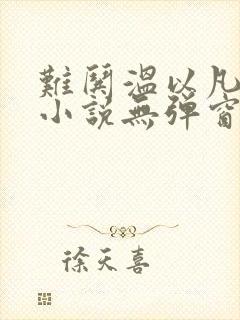 難鬨溫以凡
小說無彈窗
徐天喜